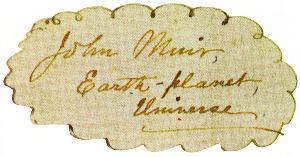 John Muir,
Earth-planet,
Universe